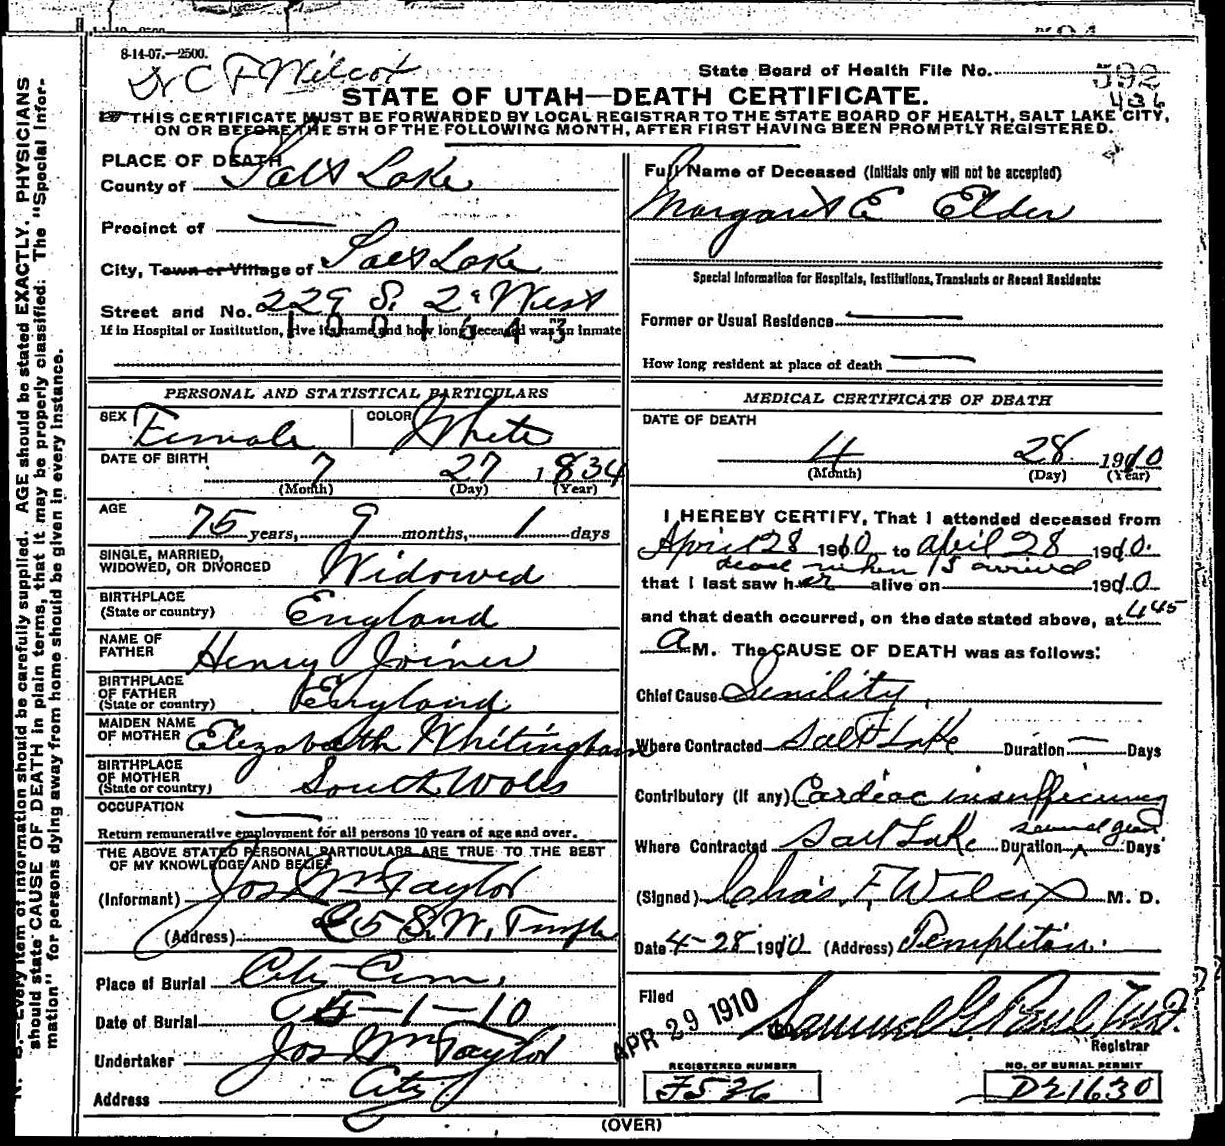 8-14-07.—2500.
Dr C F Wilcox
State Board of Health File No. 592
436
STATE OF UTAH—DEATH CERTIFICATE.
THIS CERTIFICATE MUST BE FORWARDED BY LOCAL REGISTRAR TO THE STATE BOARD OF HEALTH, SALT LAKE CITY,
ON OR BEFORE THE 5TH OF THE FOLLOWING MONTH, AFTER FIRST HAVING BEEN PROMPTLY REGISTERED.
PLACE OF DEATH
County of Salt Lake
Precinct of —
City, Town or Village of Salt Lake
Street and No. 229 S. 2d West
If in Hospital or Institution, give its name and how long deceased was an inmate
1001343
PERSONAL AND STATISTICAL PARTICULARS
SEX Female COLOR White
DATE OF BIRTH 7 27 1834
(Month) (Day) (Year)
AGE 75 years, 9 months, 1 days
SINGLE, MARRIED,
WIDOWED, OR DIVORCED Widowed
BIRTHPLACE
(State or country) England
NAME OF
FATHER Henry Joiner
BIRTHPLACE
OF FATHER
(State or country) England
MAIDEN NAME
OF MOTHER Elizabeth Whitingham
BIRTHPLACE
OF MOTHER
(State or country) South Wales
OCCUPATION —
Return remunerative employment for all persons 10 years of age and over.
THE ABOVE STATED PERSONAL PARTICULARS ARE TRUE TO THE BEST
OF MY KNOWLEDGE AND BELIEF
(Informant) Jos Wm Taylor
(Address) S. W. Temple
Place of Burial City Cem.
Date of Burial 5-1-10
Undertaker Jos Wm Taylor
Address City
Full Name of Deceased (Initials only will not be accepted)
Margaret E Elder
Special Information for Hospitals, Institutions, Transients or Recent Residents:
Former or Usual Residence —
How long resident at place of death —
MEDICAL CERTIFICATE OF DEATH
DATE OF DEATH
4 28 1910
(Month) (Day) (Year)
I HEREBY CERTIFY, That I attended deceased from
April 28 1910 to April 28 1910.
dead when I arrived
that I last saw her alive on 1910
and that death occurred, on the date stated above, at 4 45
a M. The CAUSE OF DEATH was as follows:
Chief Cause Senility
Where Contracted Salt Lake Duration — Days
Contributory (if any) Cardiac insufficiency
several years
Where Contracted Salt Lake Duration Days
(Signed) Chas. F. Wilcox M. D.
Date 4-28 1910 (Address) Templeton.
Filed APR 29 1910 Samuel G. Paul M.D.
Registrar
REGISTERED NUMBER
F536
NO. OF BURIAL PERMIT
D21630
(OVER)
N. B.—Every item of information should be carefully supplied. AGE should be stated EXACTLY. PHYSICIANS
should state CAUSE OF DEATH in plain terms, that it may be properly classified. The "Special Infor-
mation" for persons dying away from home should be given in every instance.